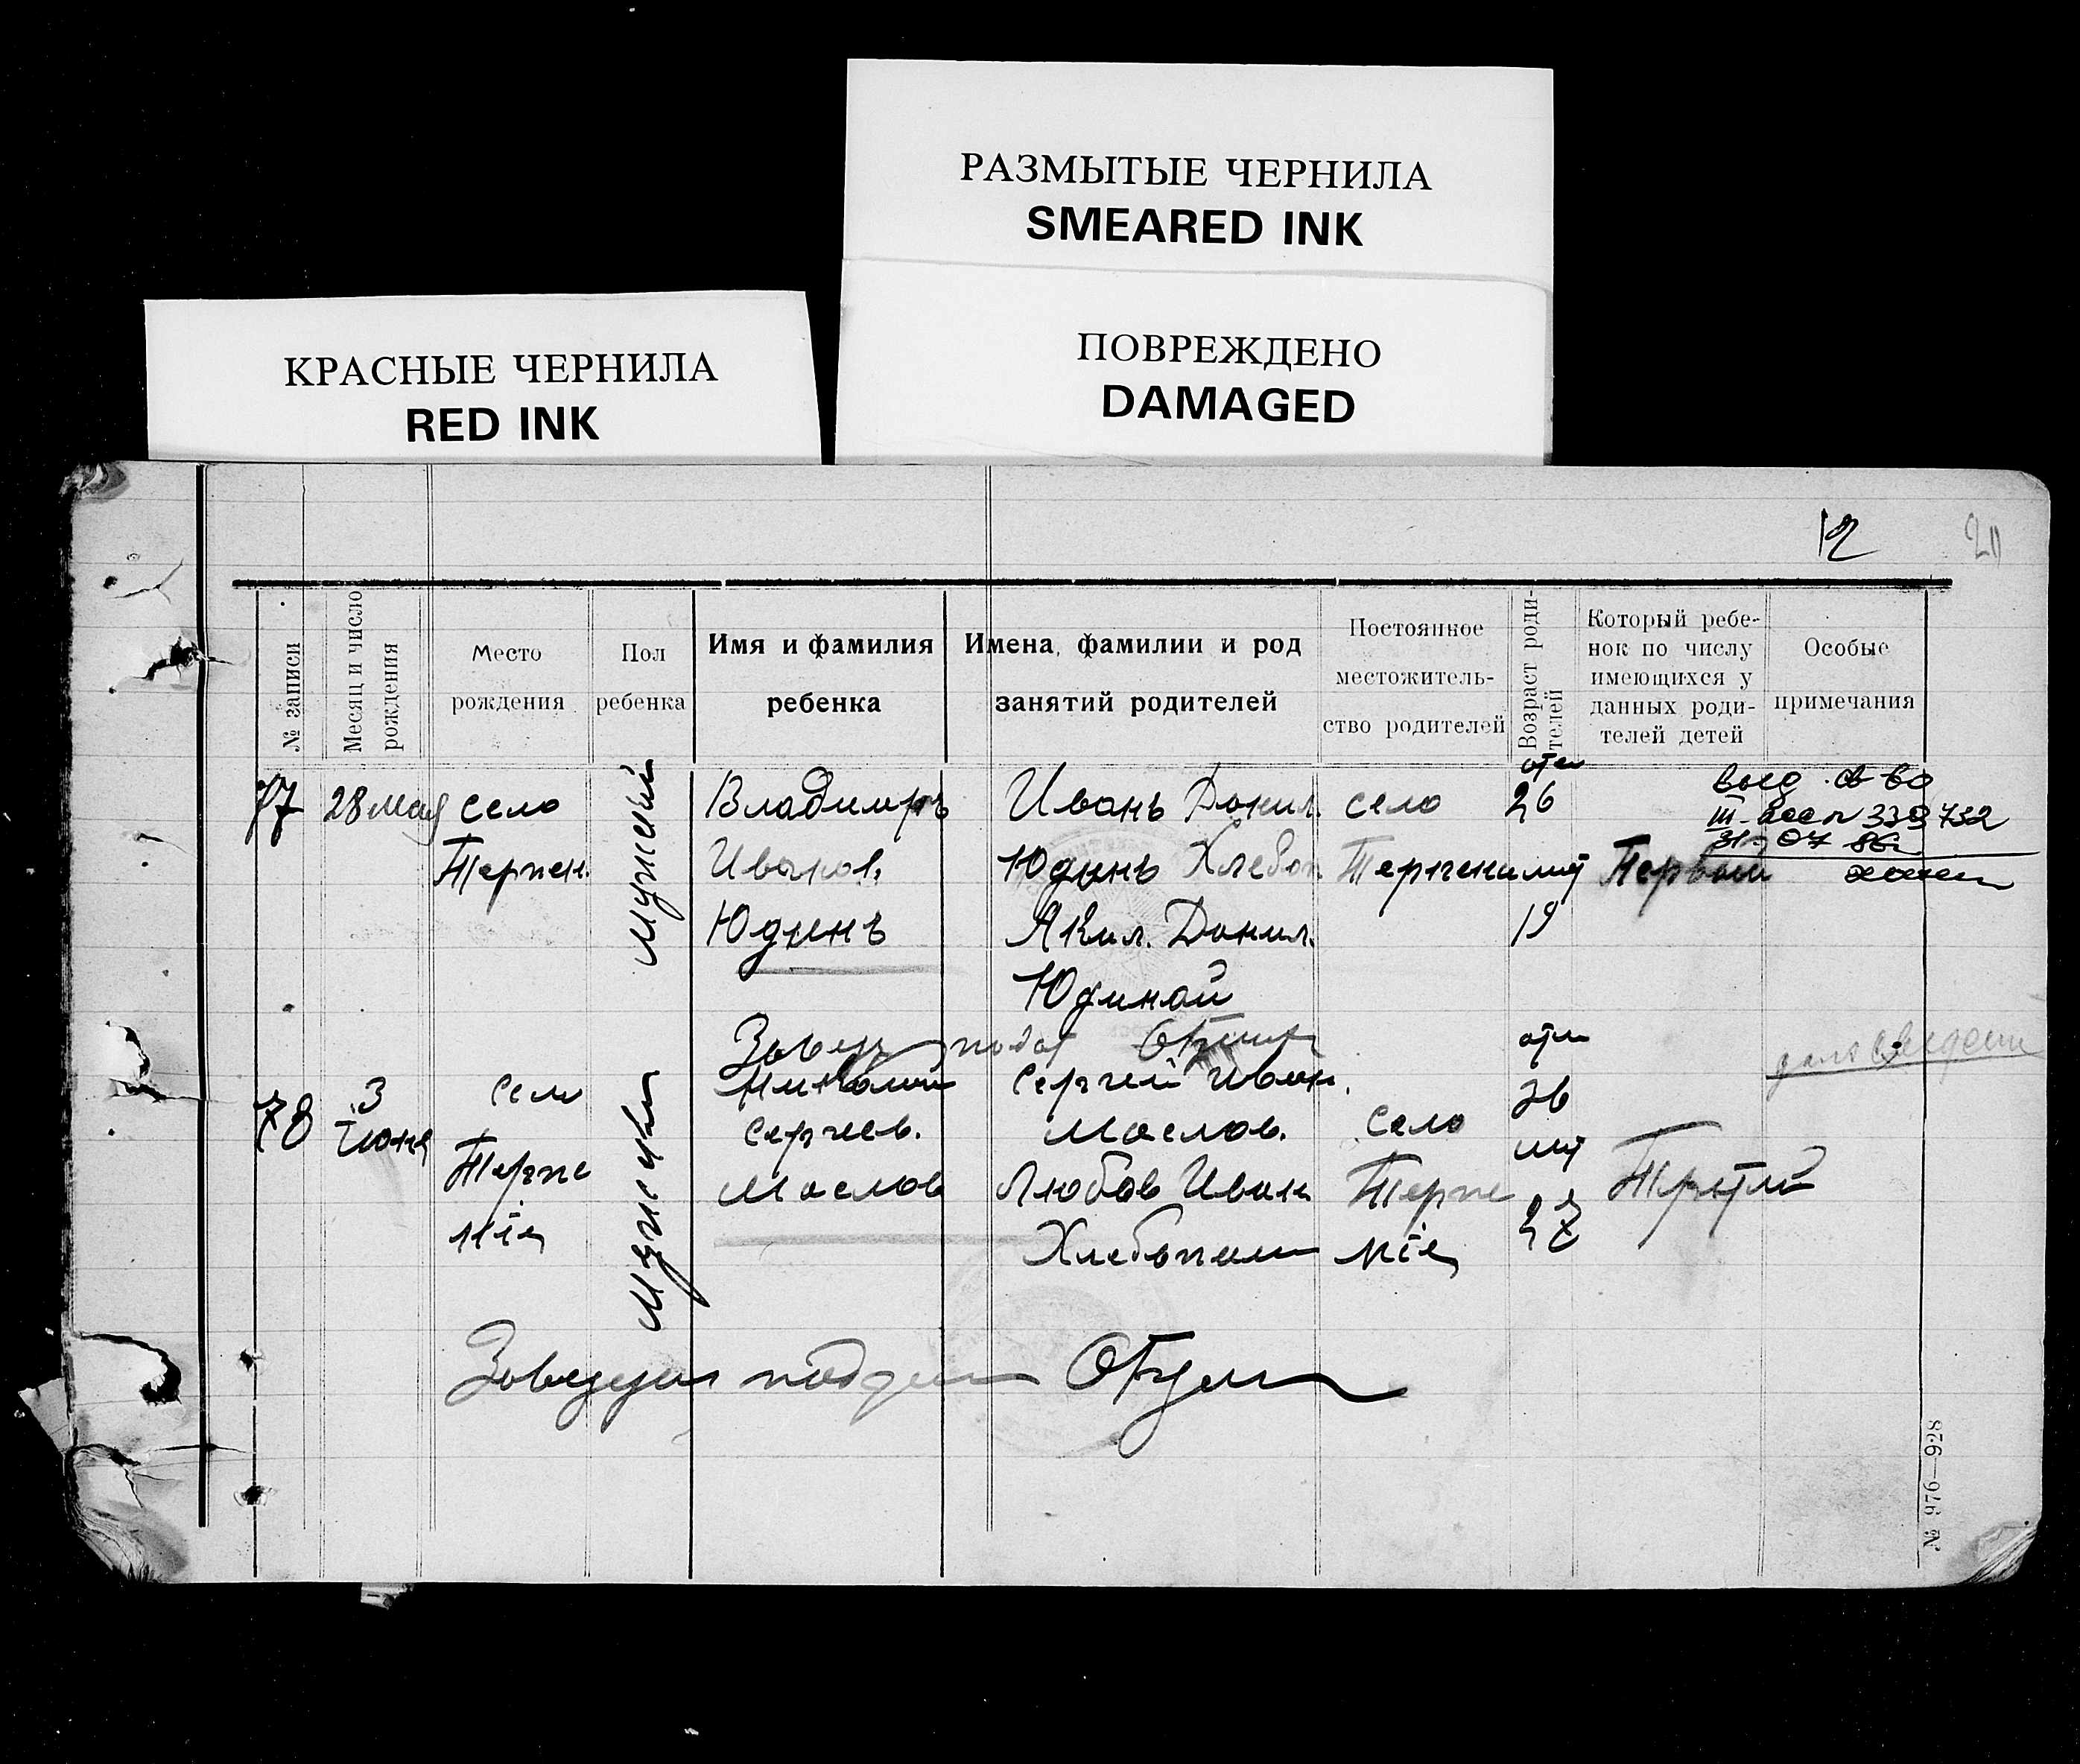 РАЗМЫТЫЕ ЧЕРНИЛА
SMEARED INK
ПОВРЕЖДЕНО
DAMAGED
КРАСНЫЕ ЧЕРНИЛА
RED INK
12
20
№ записи
Месяц и число рождения
Место рождения
Пол ребенка
Имя и фамилия ребенка
Имена, фамилии и род занятий родителей
Постоянное местожительство родителей
Возраст родителей
Который ребенок по числу имеющихся у данных родителей детей
Особые примечания
77
28 мая
село
Терпен.
мужский
Владимиръ
Иванов.
Юдинъ
Иванъ Данил.
Юдинъ Хлебоп
Акил. Данил.
Юдиной
село
Терпения
отец
26
мат
19
Первый
выд. св во
III
339732
31-07 86г.
78
3
Июня
Село
Терпе
нія
Мужский
Николай
Сергеев.
Маслов
Сергей Иван.
Маслов.
Любов Иван
Хлебопаш
село
Терпе
нія
отец
36
мат
27
Третий
Заведующ подотдел
№ 976—928